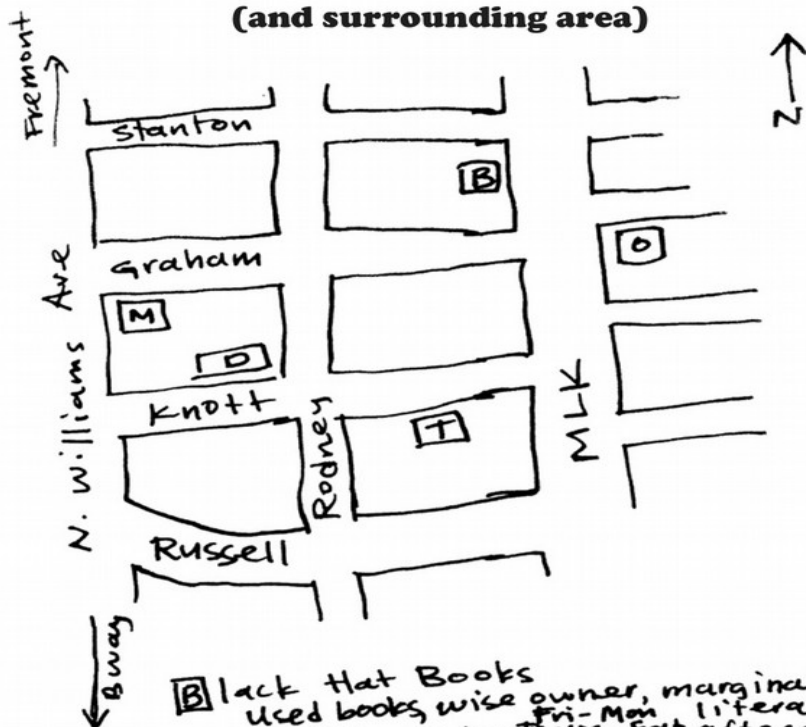 (and surrounding area)
Fremont
N
Stanton
B
Graham
O
N. Williams Ave
M
D
Knott
T
Rodney
MLK
Russell
Bway
Black Hat Books
Used books, wise owner, margina
Fri-Mon litera